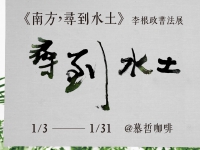 《南方，尋到水土》李根政書法展
尋到水土
1/3 —— 1/31 @慕哲咖啡